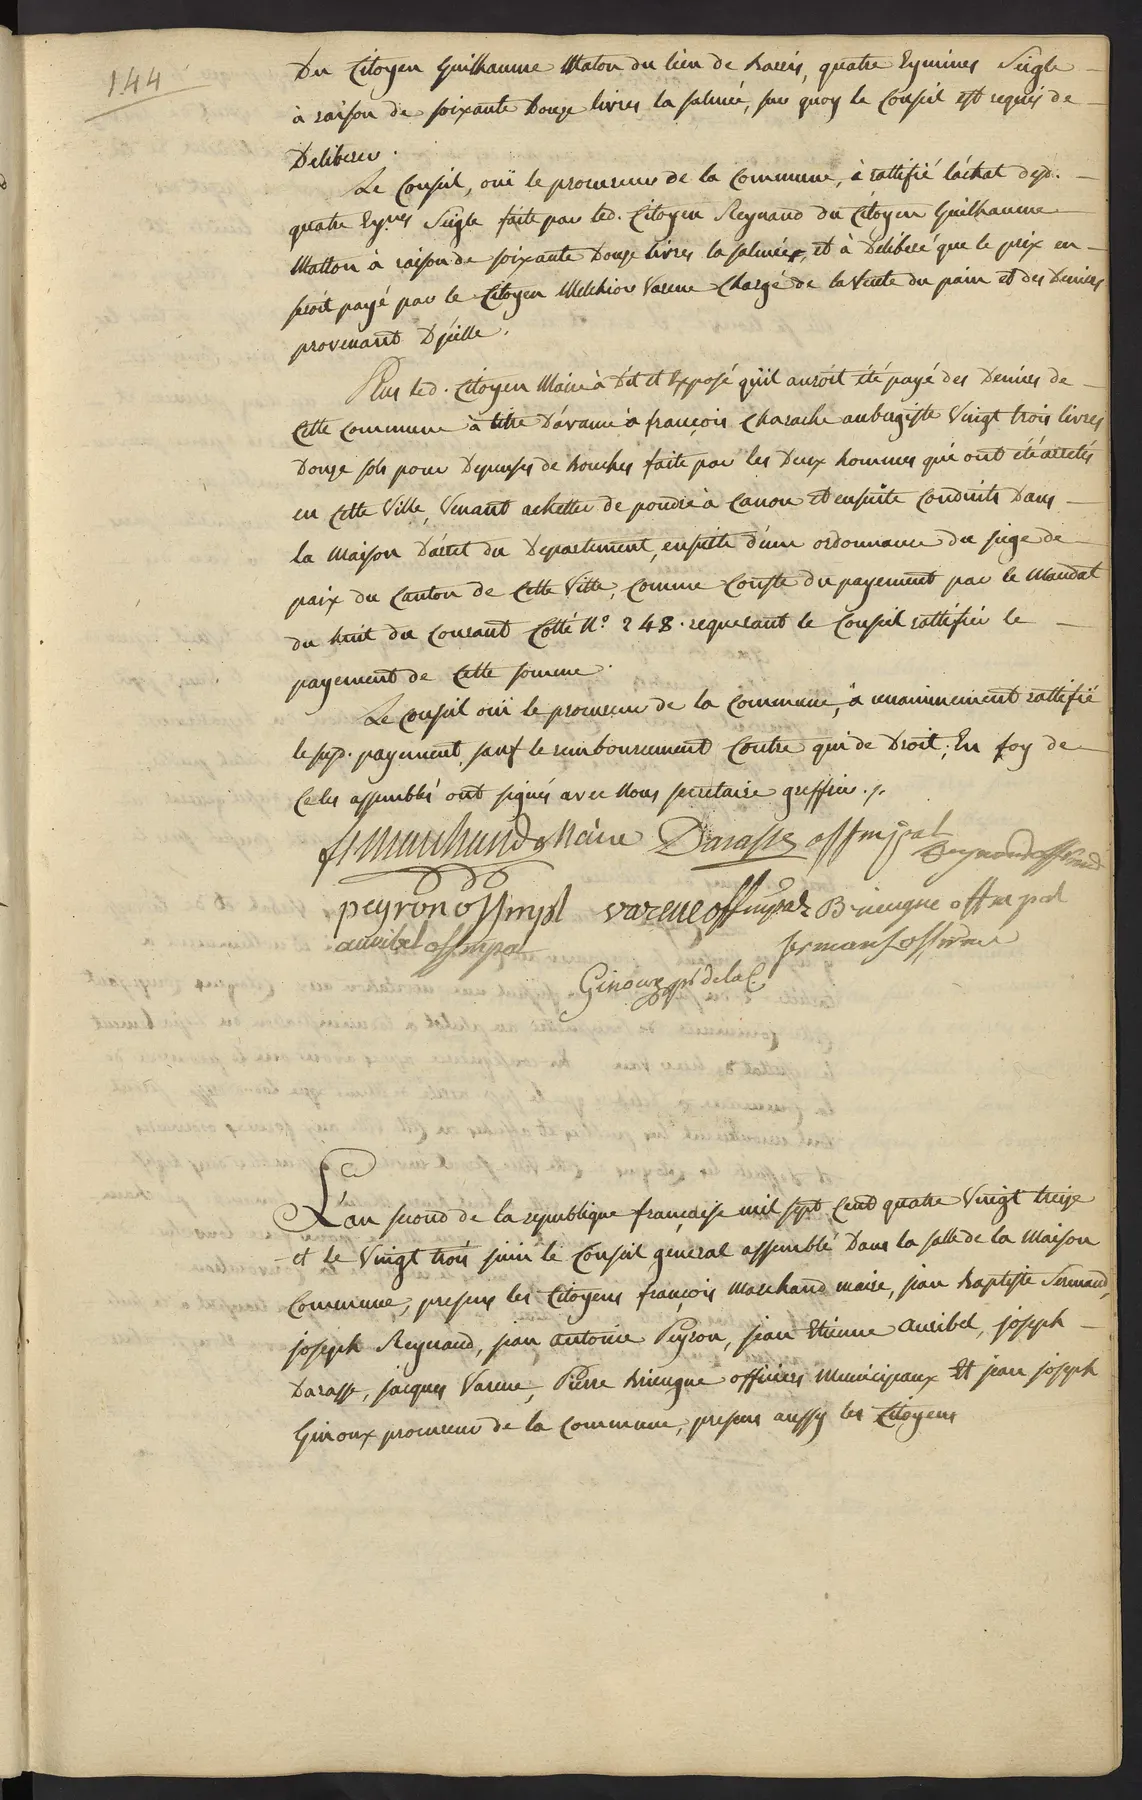 144
Du Citoyen Guilhaume Maton du lieu de barris, quatre Eymines Seigle
à raison de soixante Douze livres la salmée, sur quoy le Conseil est requis de
Deliberer.
Le Conseil, ouï le procureur de la Commune, à rattifié láchat desd.
quatre Eynes Seigle faite par led. Citoyen Reynaud du Citoyen Guilhaume
Matton à raison de soixante Douze livres la salmée, et à Deliberé que le prix en
seroit payé par le Citoyen Melchior Varene Chargé de la Vente du pain et des Deniers
provenant D'jcelle.
Plus led. Citoyen Maire à Dit et Exposé qu'il auroit été payé des Deniers de
Cette Commune à titre D'avance à françois Charache aubergiste Vingt trois livres
Douze sols pour Depenses de bouches faite par les Deux hommes qui ont été arretés
en Cette Ville, Venant achetter de poudre à Canon et ensuite Conduits Dans
la Maison D'arret du Departement, ensuite d'une ordonnance du juge de
paix du Canton de Cette Ville, Comme Conste du payement par le Mandat
du huit du Courant Cotté N.° 248. requerant le Conseil rattifier le
payement de Cette somme.
Le Conseil ouï le procureur de la Commune, à unanimement rattifié
le susd. payement, sauf le remboursement Contre qui de Droit; En foy de
Ce les assemblés ont signés avec Nous secretaire greffier./.
fs marchand Maire Darasse off mpal
Reynaud off
peyron off mpl vareneoffmpal Brieugne off mpal
auribel off mpal
sermand off
Giroux pr de la C
L'an second de la republique françaíse mil sept Cent quatre Vingt treize
et le Vingt trois juin le Conseil général assemblé Dans la salle de la Maison
Commune, presens les Citoyens françois Marchand maire, jean baptiste Sermand,
joseph Reynaud, jean antoine Peyron, jean Etienne auribel, joseph
Darasse, jacques Varene, Pierre brieugne officiers Municipaux Et jean joseph
Giroux procureur de la Commune, presens aussy les Citoyens